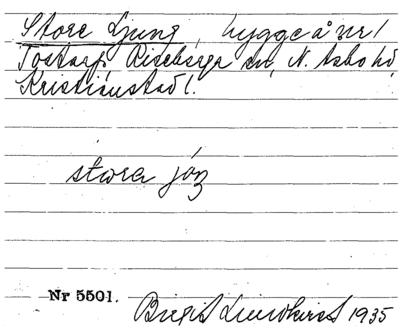 Store Ljung, bygge å nr 1
Tostarp Riseberga sn, N. Åsbo hd,
Kristianstad l.
stwora jóŋ
Nr 5501.
Birgit Lundkvist 1935